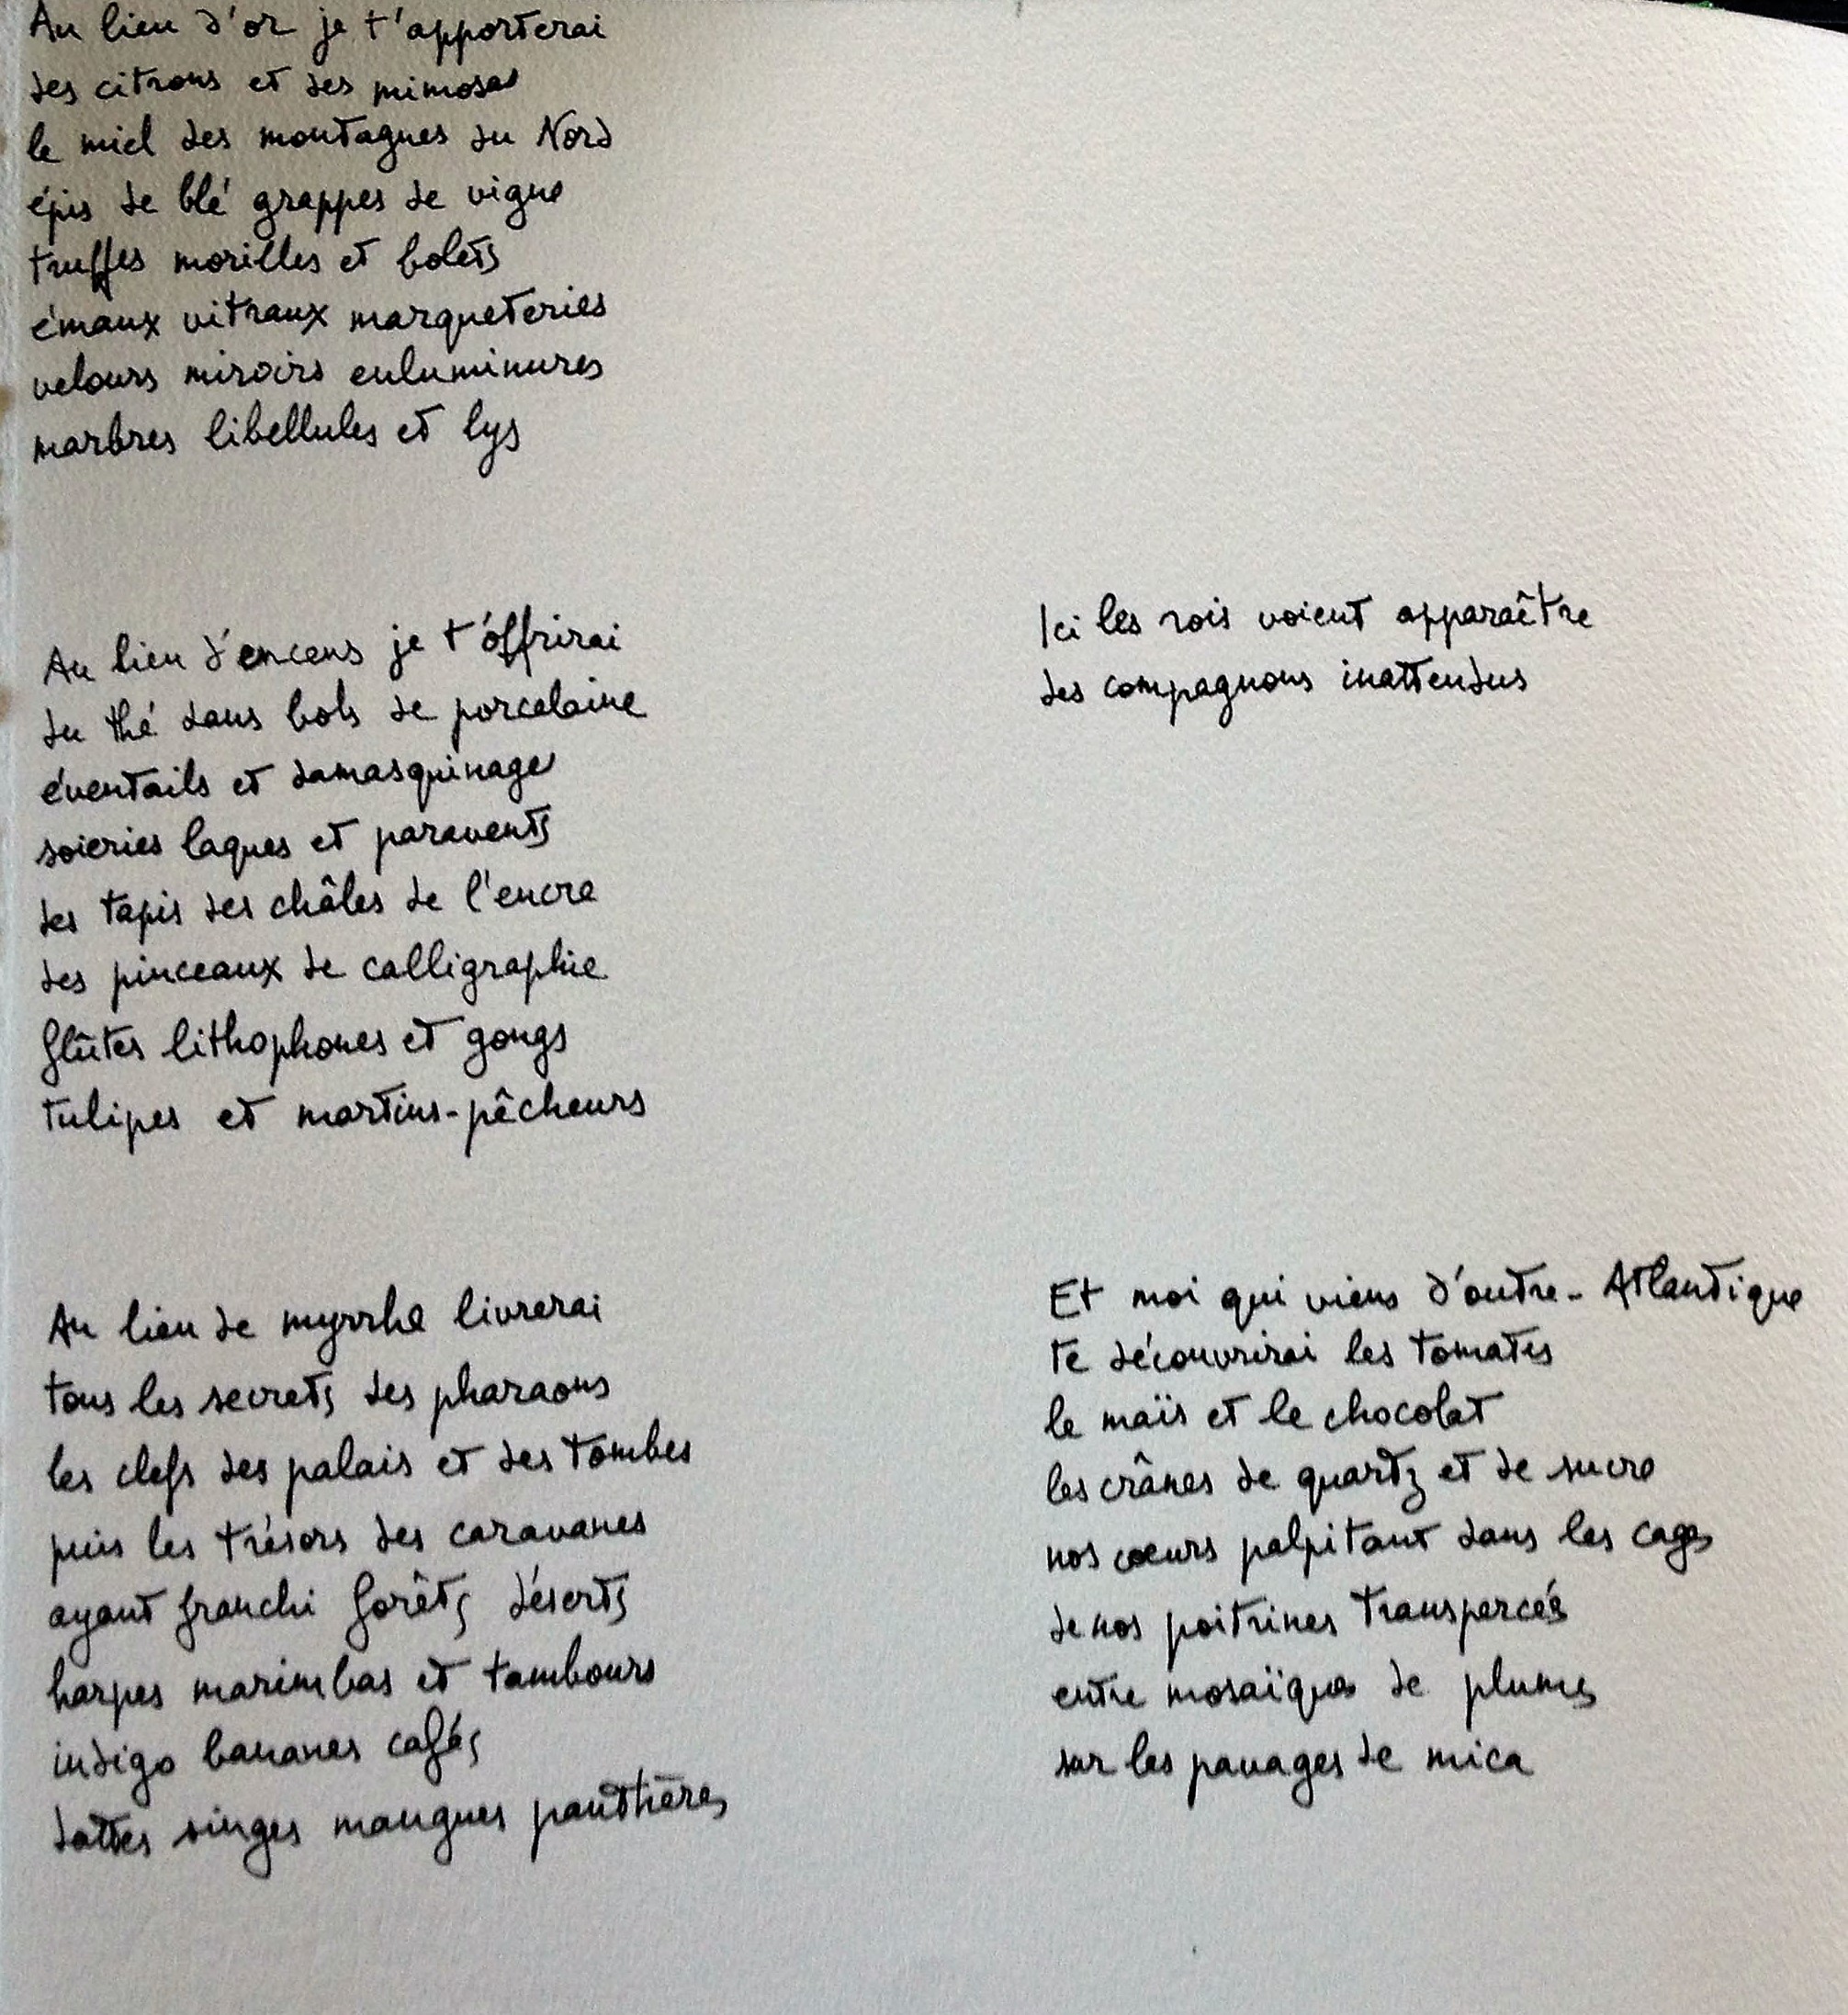 Au lieu d'or je t'apporterai
des citrons et des mimosas
le miel des montagnes du Nord
épis de blé grappes de vigne
truffes morilles et bolets
émaux vitraux marqueteries
velours miroirs enluminures
marbres libellules et lys
Au lieu d'encens je t'offrirai
du thé dans bols de porcelaine
éventails et damasquinages
soieries laques et paravents
des tapis des châles de l'encre
des pinceaux de calligraphie
flûtes lithophones et gongs
tulipes et martins-pêcheurs
Au lieu de myrrhe livrerai
tous les secrets des pharaons
les clefs des palais et des tombes
puis les trésors des caravanes
ayant franchi forêts déserts
harpes marimbas et tambours
indigo bananes cafés
dattes singes mangues panthères
Ici les rois voient apparaître
des compagnons inattendus
Et moi qui viens d'outre-Atlantique
te découvrirai les tomates
le maïs et le chocolat
les crânes de quartz et de sucre
nos cœurs palpitant dans les cages
de nos poitrines transpercées
entre mosaïques de plumes
sur les pavages de mica